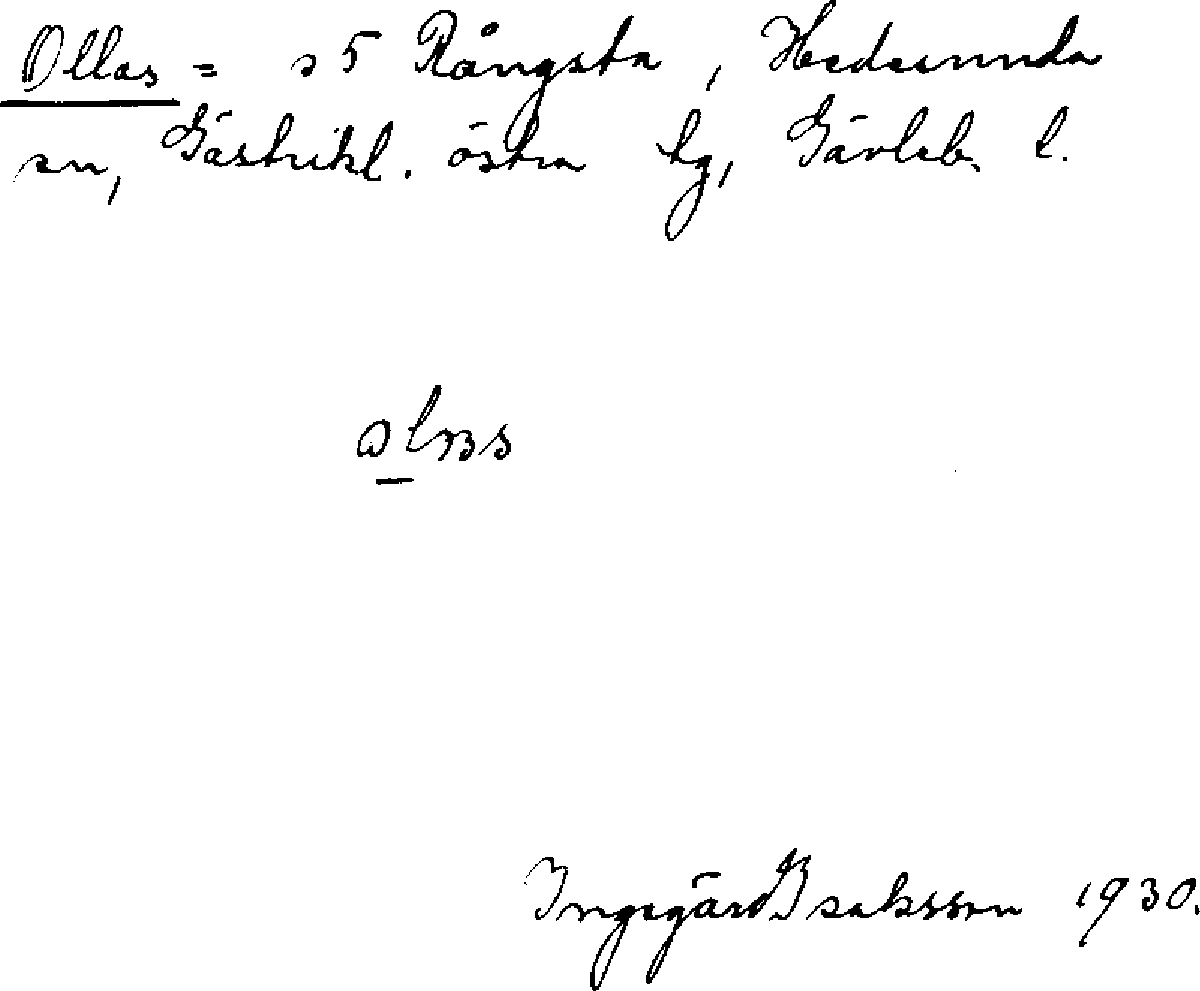 Ollas = s 5 Rångsta, Hedesunda
sn, Gästrikl. östra tg, Gävleb. l.
Ingegärd Isaksson 1930.